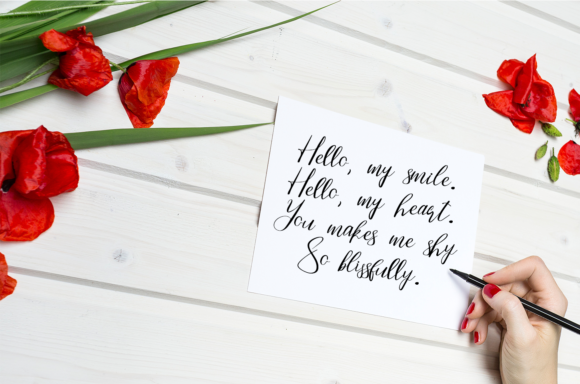 Hello, my smile.
Hello, my heart.
You makes me shy
So blissfully.